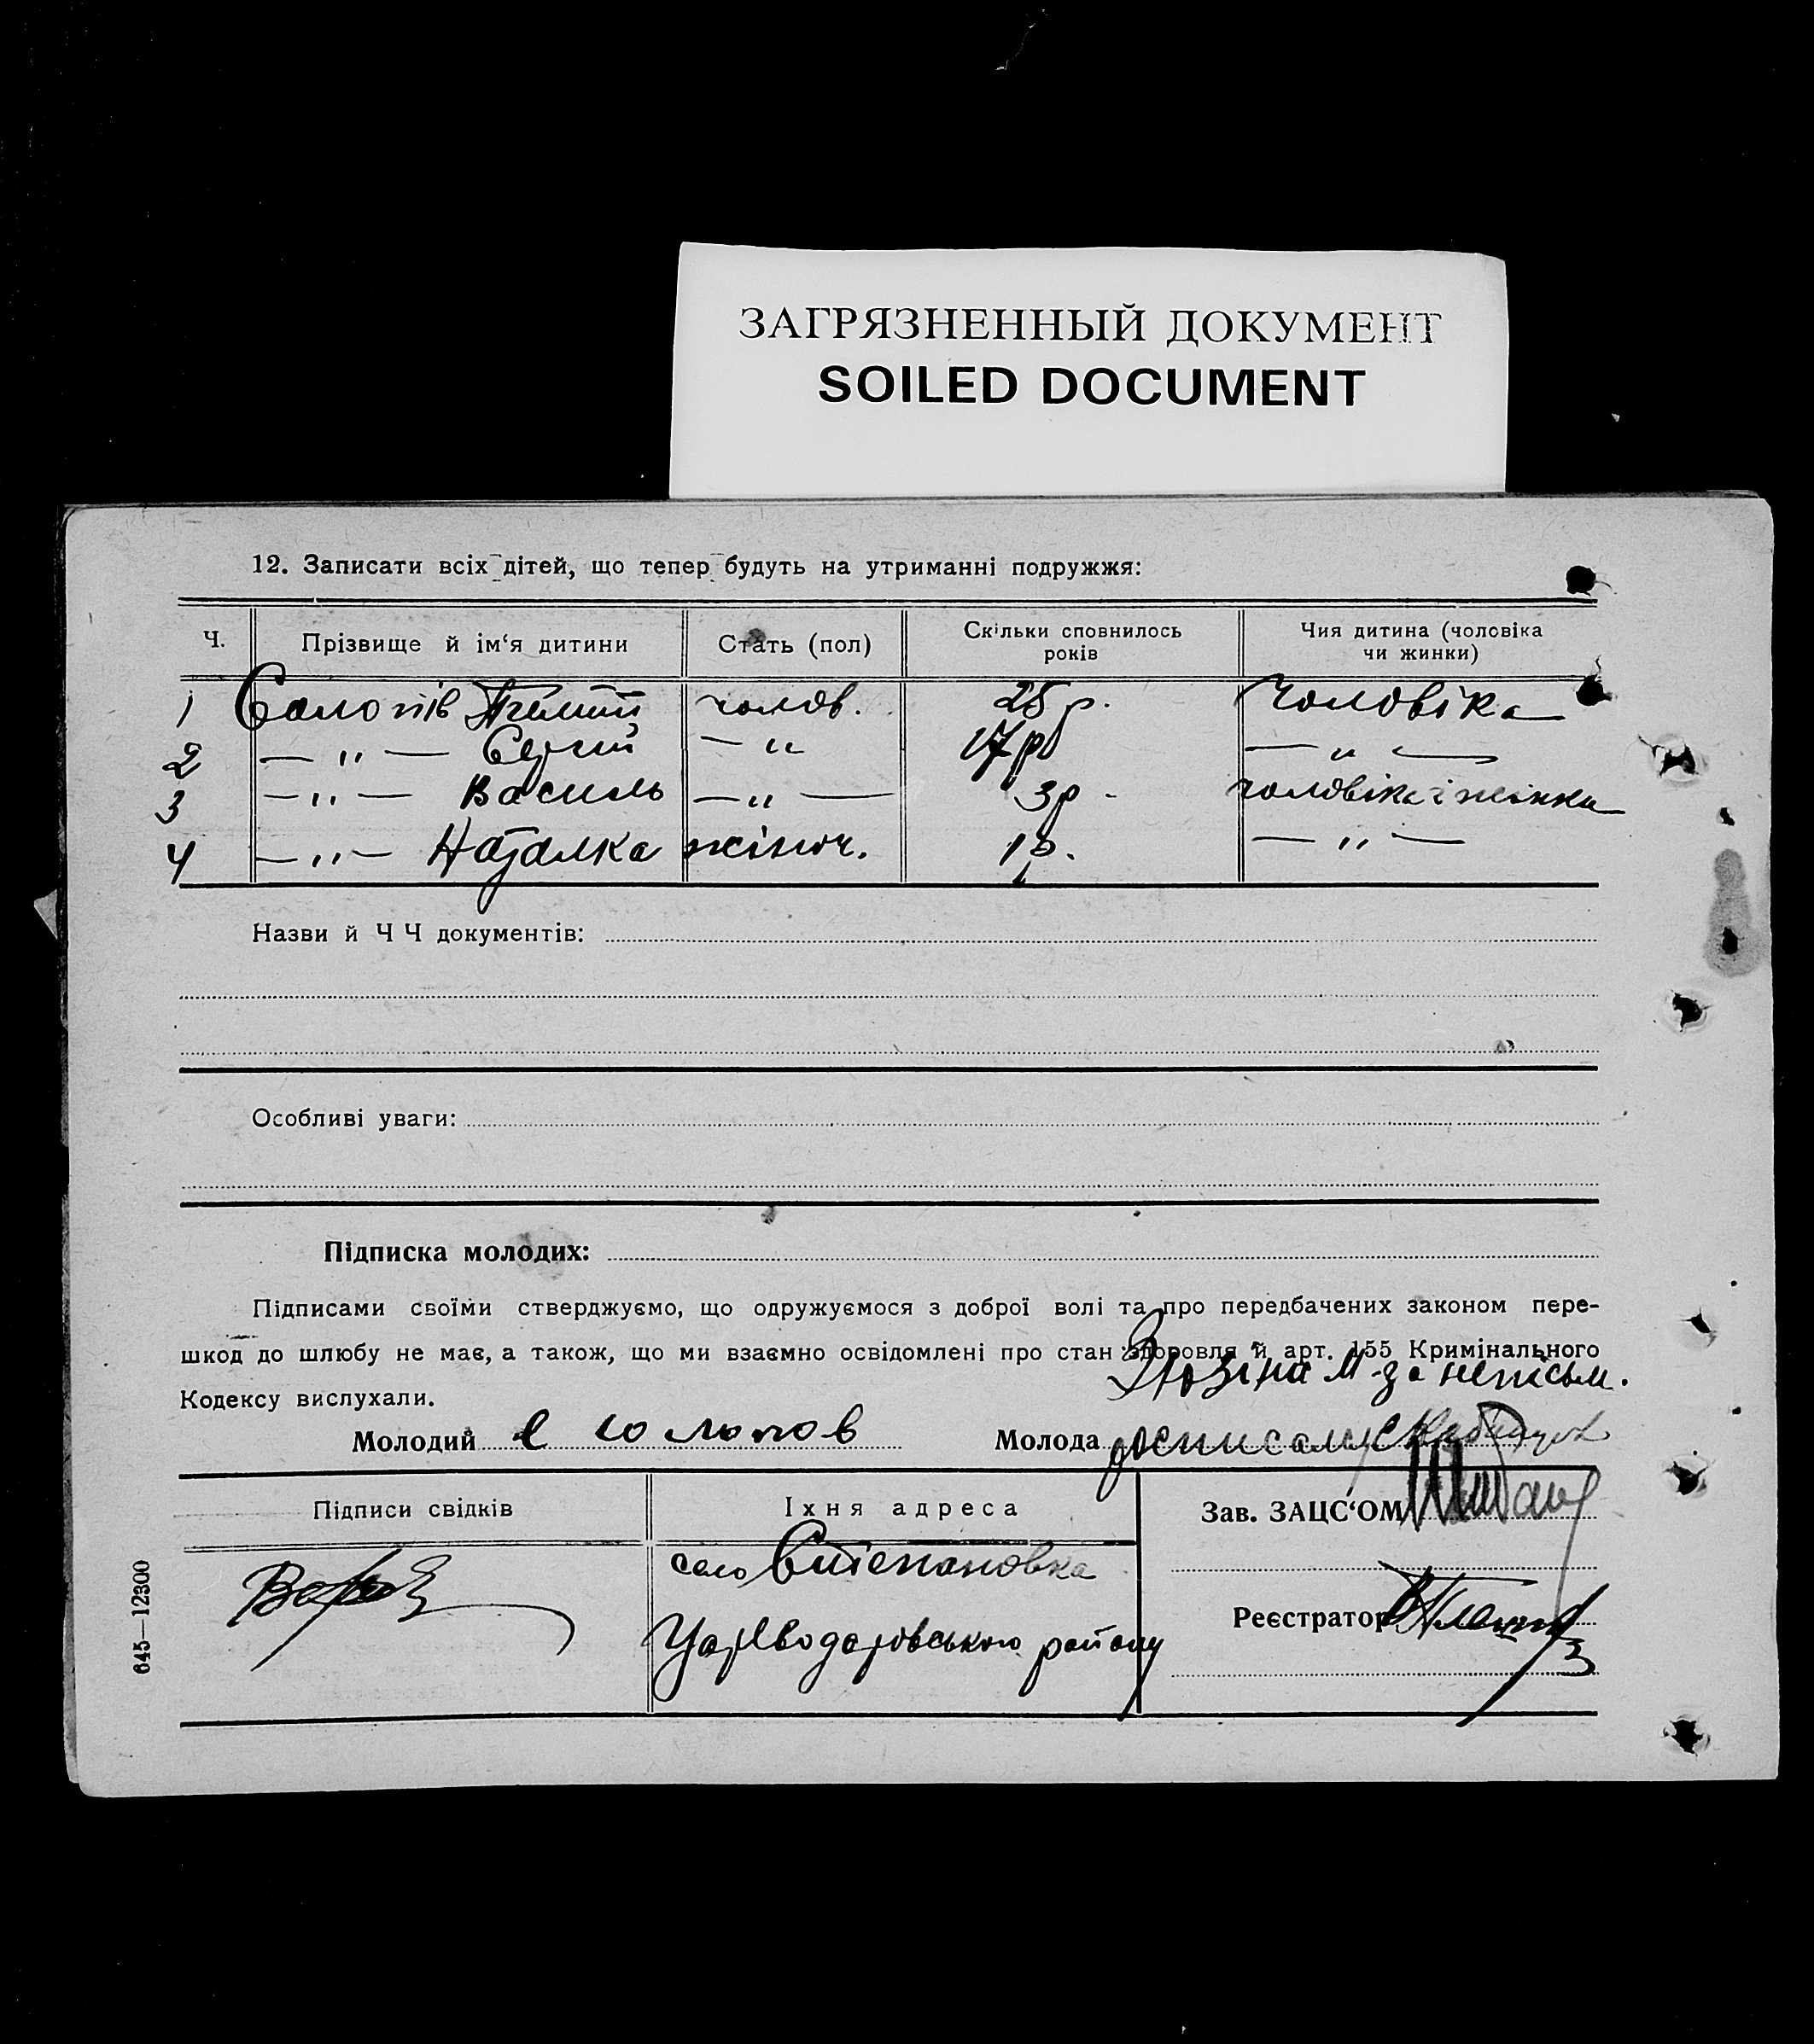 ЗАГРЯЗНЕННЫЙ ДОКУМЕНТ
SOILED DOCUMENT
12. Записати всіх дітей, що тепер будуть на утриманні подружжя:
Ч. Прізвище й ім‘я дитини Стать (пол) Скільки сповнилось років Чия дитина (чоловіка чи жинки)
1 чолов. 25 р. Чоловіка
2 — „ — Сергій — „ 17 р — „ —
3 — „ — Василь — „ — 3 р - чоловіка і жінки
4 — „ — Наталка жіноч. 1 р. — „ —
Назви й Ч Ч документів:
Особливі уваги:
Підписка молодих:
Підписами своїми стверджуємо, що одружуємося з доброї волі та про передбачених законом пере-
шкод до шлюбу не має, а також, що ми взаємно освідомлені про стан здоровля й арт. 155 Кримінального
Кодексу вислухали.
М - за неписьм.
Молодий Молода
Підписи свідків Їхня адреса Зав. ЗАЦС‘ОМ
село Степановка
району
Реєстратор
645—12300